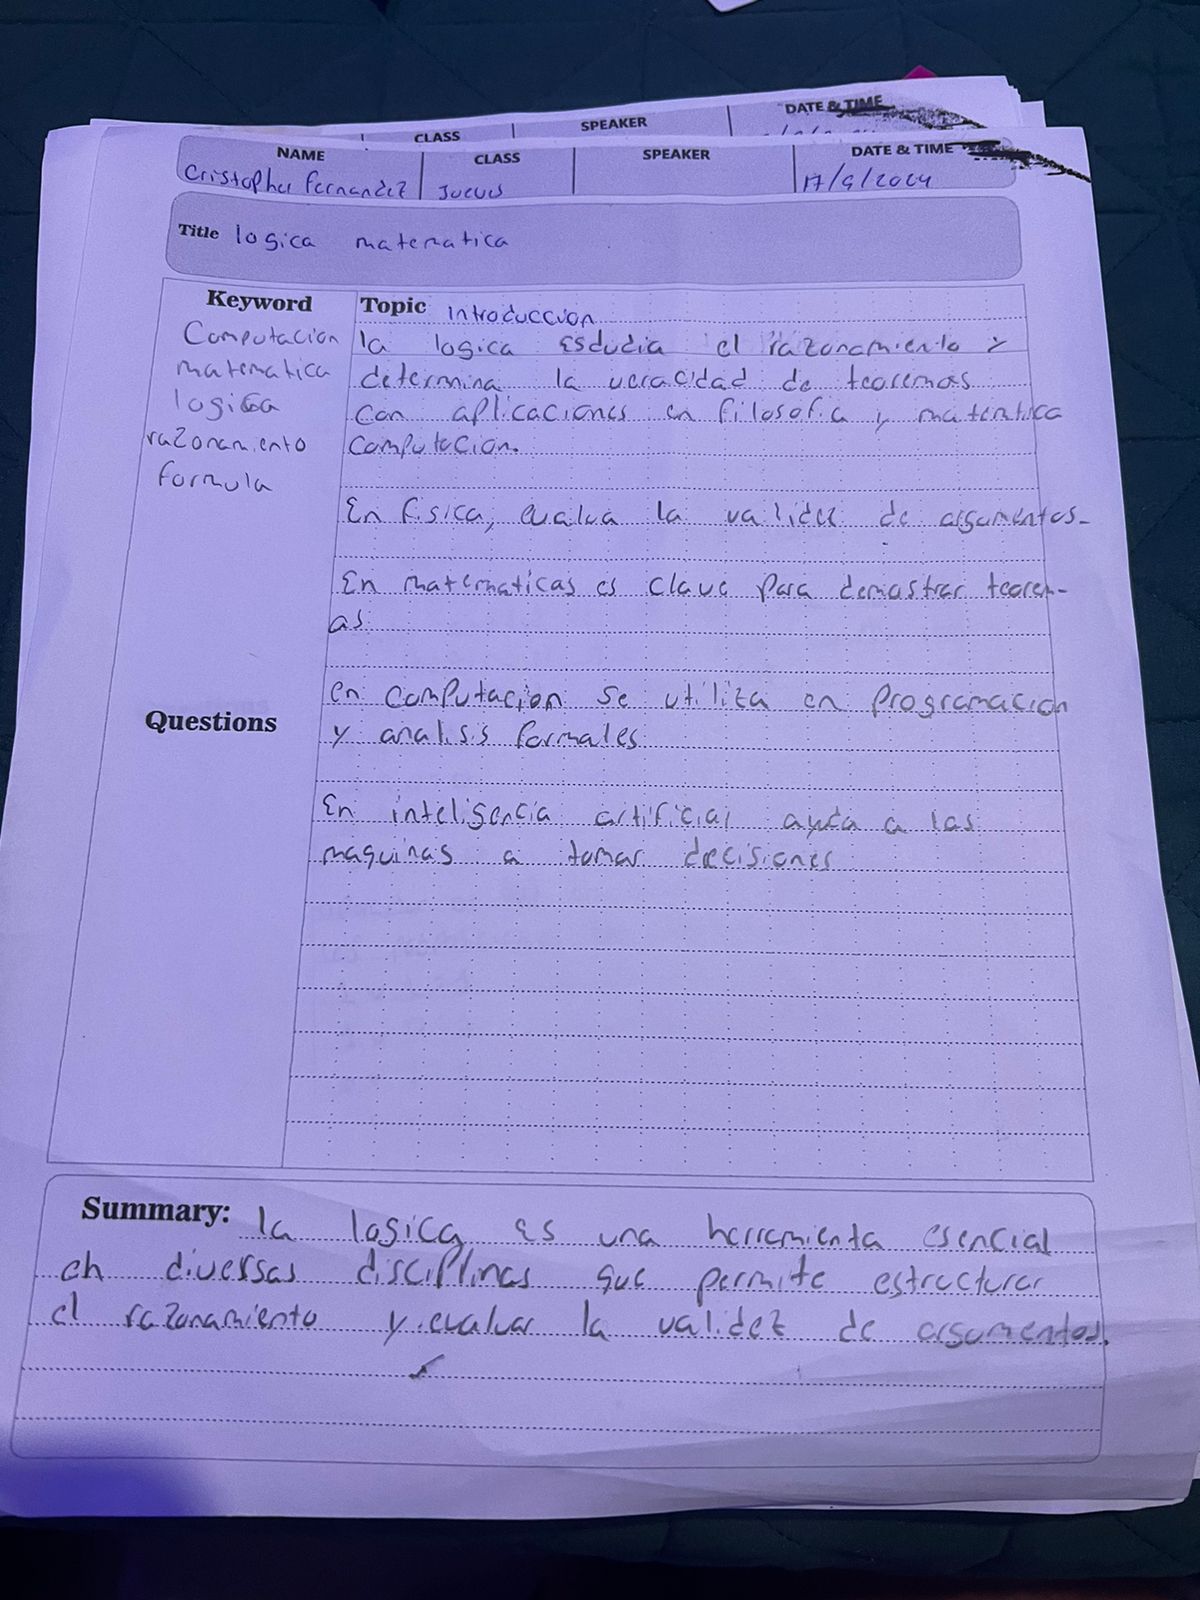 CLASS SPEAKER DATE & TIME
NAME CLASS SPEAKER DATE & TIME
Cristopher Fernandez Jueves 17/9/2024
Title logica matematica
Keyword
Computacion
matematica
logica
razonamiento
formula
Topic Introduccion
la logica esdudia el razonamiento y
determina la veracidad de teoremas
con aplicaciones en filosofia y
computacion.
En fisica, evalua la validez de argumentos.
En matematicas es clave para demostrar teorem-
as.
Questions
en computacion se utiliza en programacion
y analisis formales
En inteligencia artificial ayuda a las
maquinas a tomar decisiones
Summary: la logica es una herramienta esencial
en diversas disciplinas que permite estructurar
el razonamiento y evaluar la validez de argumentos.